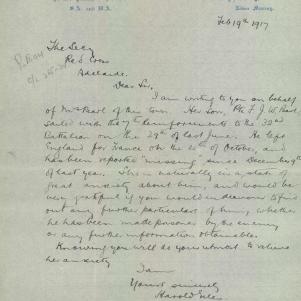 S.A. and W.A.
Feb 19th 1917
The Secy
Red Cross
Adelaide.
Dear Sir,
I am writing to you on behalf
of Mrs Pearl of this town. Her Son, Pte F. J. W. Pearl
sailed with the 7th Reinforcements to the 32nd
Battalion on the 27th of last June. He left
England for France on the of October, and
has been reported "missing" since December 9th
of last year. She is naturally in a state of
great anxiety about him, and would be
very grateful if you would endeavour to find
out any further particulars of him, whether
he has been made prisoner by the enemy
or any further information obtainable.
Knowing you will do your utmost to relieve
her anxiety
I am
Yours sincerely
Harold